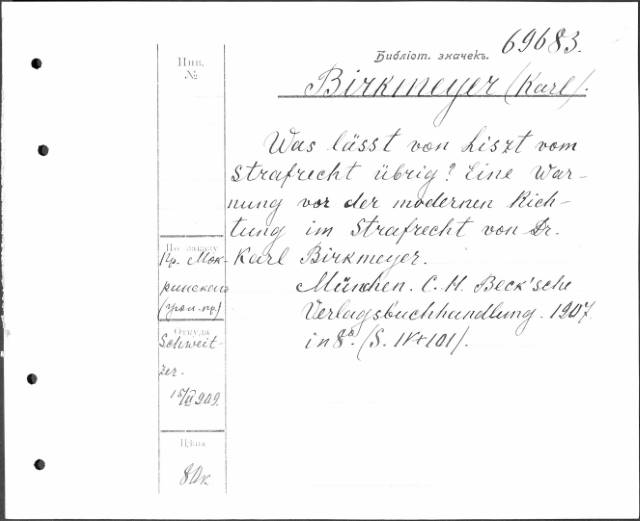 Библіот. значекъ. 69683.
Инв.
№
Birkmeyer (Karl).
Was lässt von Liszt vom
Strafrecht übrig? Eine War-
nung vor der modernen Rich-
tung im Strafrecht von Dr.
Karl Birkmeyer.
München. C. H. Beck'sche
Verlagsbuchhandlung. 1907.
in 8°. (S. IV+101).
По заказу
Пр. Мок-
ринскаго
Откуда
Schweit-
zer.
909.
Цѣна
80к